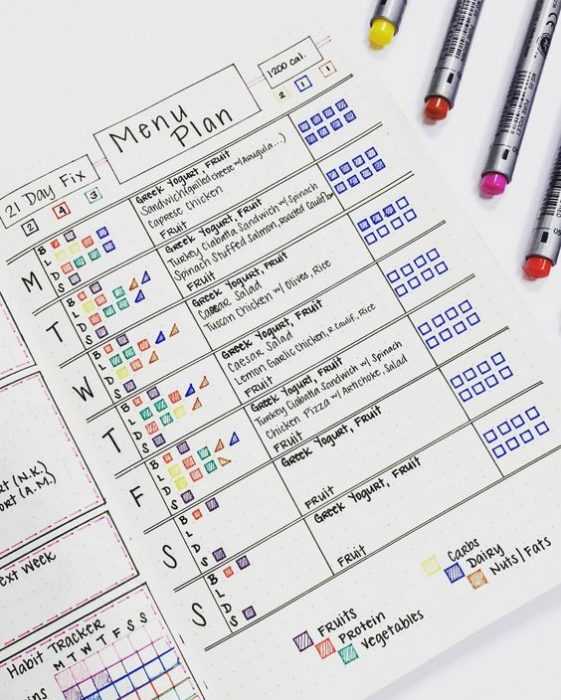 Menu
Plan
1200 cal.
2 1 1
21 Day Fix
2 4 3
M
B Greek Yogurt, Fruit
L Sandwich (grilled cheese w/ Arugula...)
D Caprese Chicken
S Fruit
T
B Greek Yogurt, Fruit
L Turkey Ciabatta Sandwich w/ Spinach
D Spinach Stuffed Salmon, Roasted Cauliflow
S Fruit
W
B Greek Yogurt, Fruit
L Caesar Salad
D Tuscan Chicken w/ Olives, Rice
S
T
B Greek Yogurt, Fruit
L Caesar Salad
D Lemon Garlic Chicken, R. Caulif., Rice
S Fruit
F
B Greek Yogurt, Fruit
L Turkey Ciabatta Sandwich w/ Spinach
D Chicken Pizza w/ Artichoke, Salad
S Fruit
S
B Greek Yogurt, Fruit
L
D
S Fruit
S
B Greek Yogurt, Fruit
L
D
S Fruit
Fruits
Protein
Vegetables
Carbs
Dairy
Nuts/Fats
rt (N.K.)
ort (A.M.)
ext Week
Habit Tracker
M T W T F S S
ins